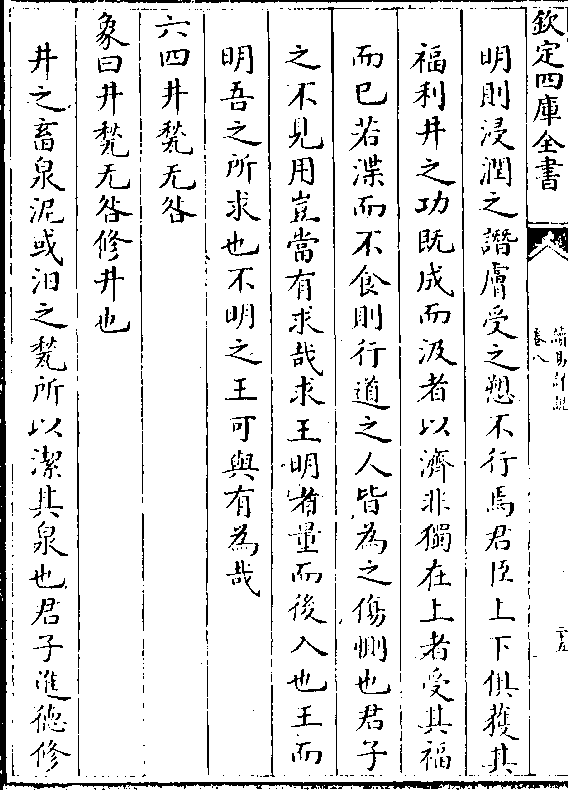 欽定四庫全書
卷八
明則浸潤之譖膚受之愬不行焉君臣上下俱獲其
福利井之功既成而汲者以濟非獨在上者受其福
而已若渫而不食則行道之人皆為之傷惻也君子
之不見用豈當有求哉求王明者量而後入也王而
明吾之所求也不明之王可與有為哉
六四井甃无咎
象曰井甃无咎修井也
井之畜泉泥或汩之甃所以潔其泉也君子進德修